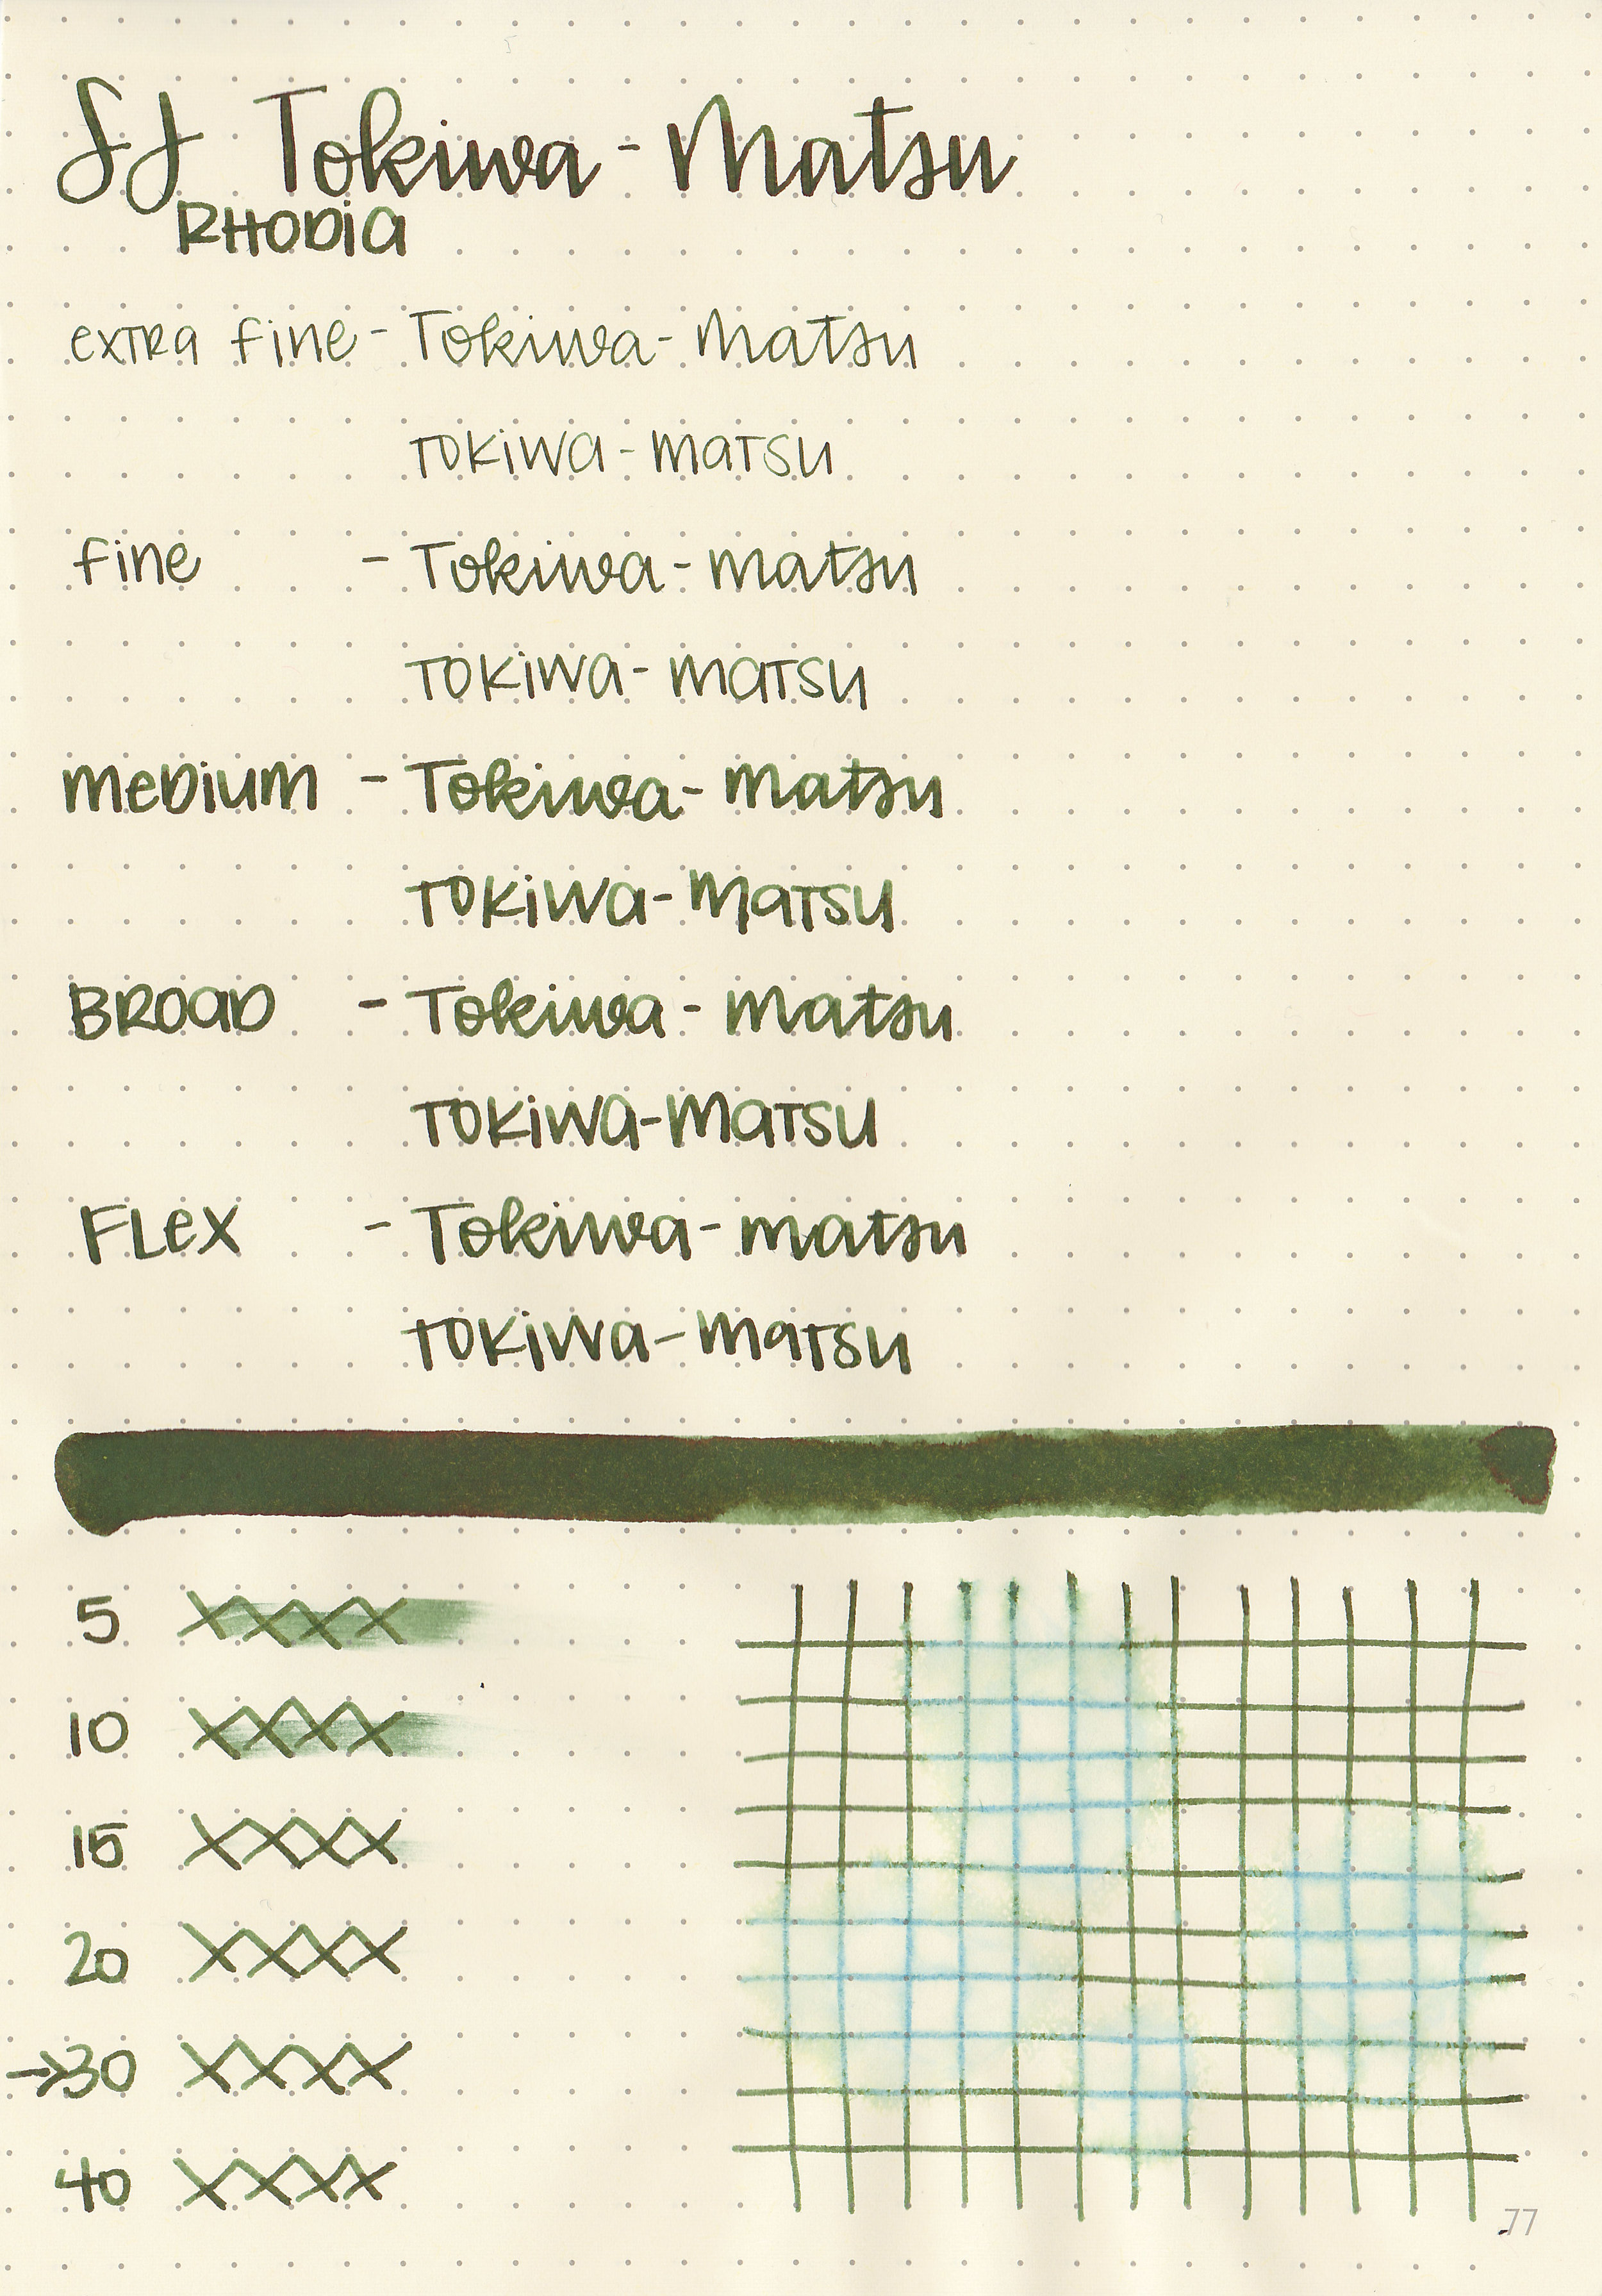 SJ Tokiwa-Matsu
RHODIA
extra fine - Tokiwa-matsu
Tokiwa-matsu
fine - Tokiwa-matsu
Tokiwa-matsu
Medium - Tokiwa-matsu
Tokiwa-Matsu
BROAD - Tokiwa-matsu
Tokiwa-Matsu
FLex - Tokiwa-matsu
Tokiwa-matsu
5 XXXX
10 XXXX
15 XXXX
20 XXXX
→30 XXXX
40 XXXX
77